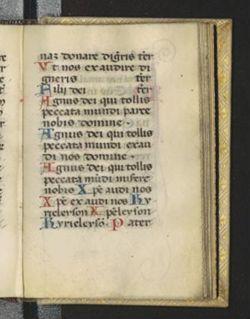 naz donare digneris ter
Ut nos exaudire di
gneris ter
Fili dei ter
Agnus dei qui tollis
peccata mundi parce
nobis domine.
Agnus dei qui tollis
peccata mundi exau
di nos domine.
Agnus dei qui tollis
peccata mūdi misere
nobis Xp̄e audi nos
Xp̄e exaudi nos Ky
rieleyson Xp̄eleyson
Kyrieleyson. Pater